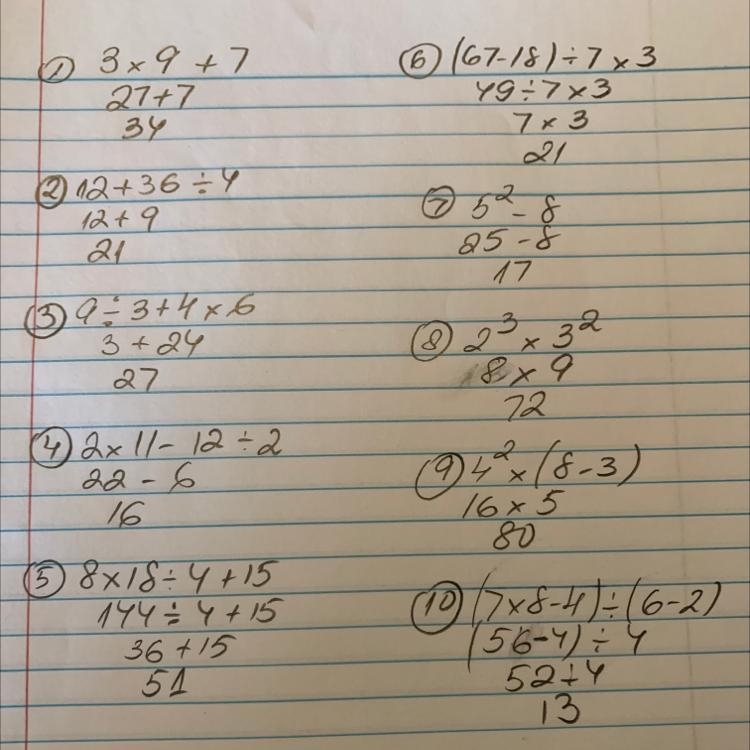 ① 3 × 9 + 7
27 + 7
34
② 12 + 36 ÷ 4
12 + 9
21
③ 9 ÷ 3 + 4 × 6
3 + 24
27
④ 2 × 11 - 12 ÷ 2
22 - 6
16
⑤ 8 × 18 ÷ 4 + 15
144 ÷ 4 + 15
36 + 15
51
⑥ (67 - 18) ÷ 7 × 3
49 ÷ 7 × 3
7 × 3
21
⑦ 5² - 8
25 - 8
17
⑧ 2³ × 3²
8 × 9
72
⑨ 4² × (8 - 3)
16 × 5
80
⑩ (7 × 8 - 4) ÷ (6 - 2)
(56 - 4) ÷ 4
52 ÷ 4
13